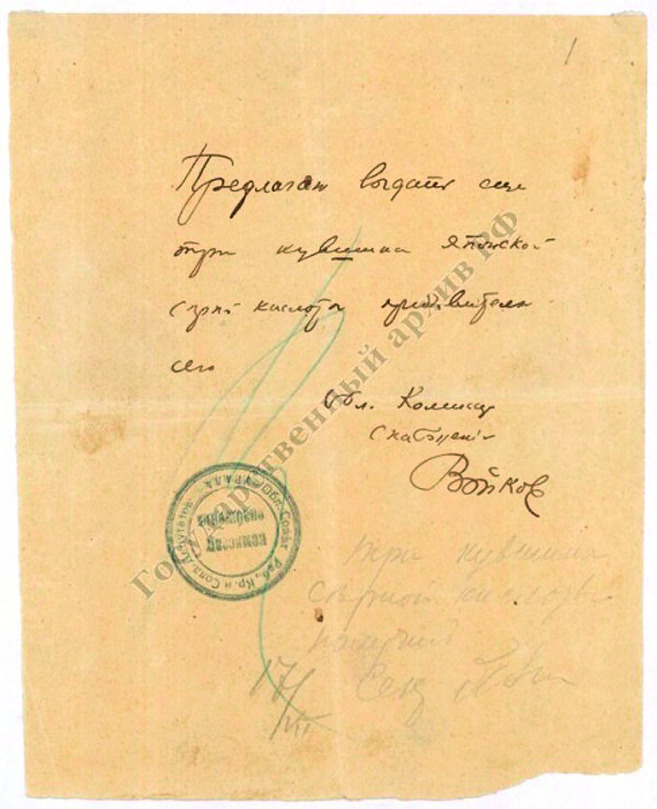 1
Предлагаю выдать еще
три кувшина Японской
серной кислоты предъявителю
сего
Обл. Комиссар
Снабжения
Войков
Обл. Совет Раб., Кр. и Солд. Депутатов
УРАЛА
комиссар
снабжения
кувшина
серной кислоты
получил
17/VII
Государственный архив РФ